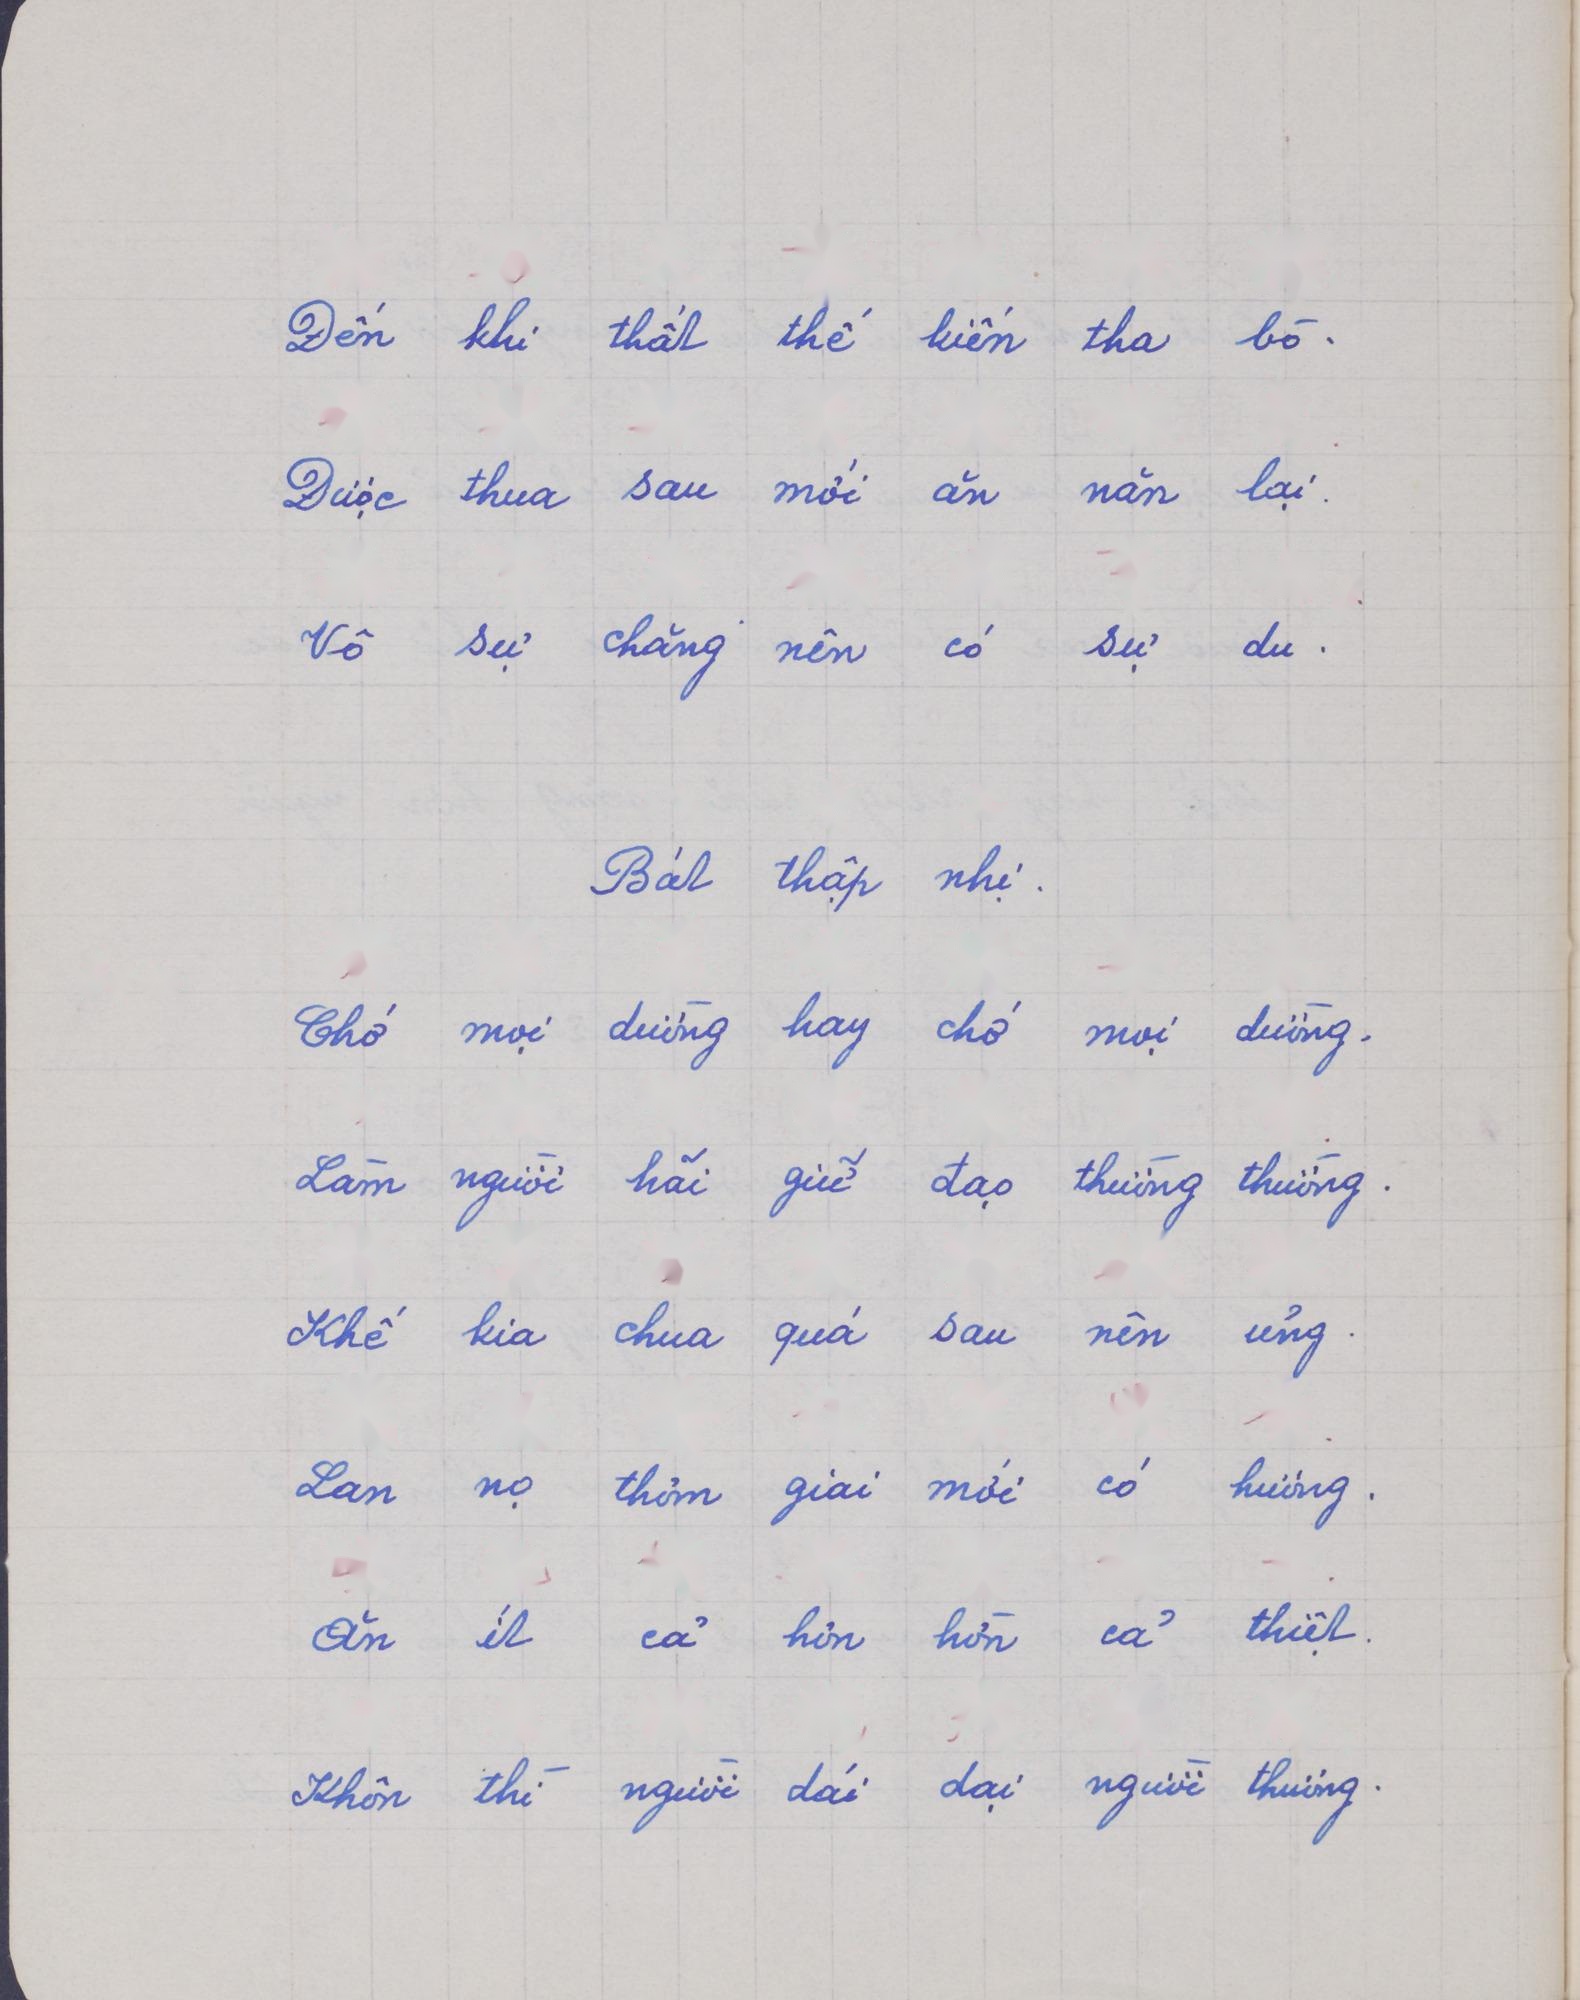 Đến khi thất thế kiến tha bò.
Được thua sau mới ăn năn lại.
Vô sự chăng nên có sự du.
Bát thập nhị.
Chớ mọi đường hay chớ mọi đường.
Làm người hãi giữ đạo thường thường.
Khế kia chua quá sau nên ửng.
Lan nọ thơm giai mới có hương.
Ăn ít cả hơn hờn cả thiệt.
Khôn thì người dái dại người thương.